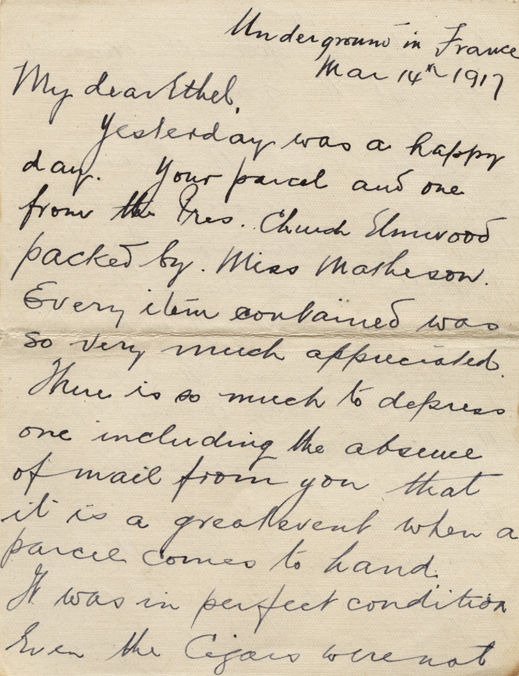 Underground in France
Mar 14th 1917
My dear Ethel,
Yesterday was a happy
day. Your parcel and one
from the Pres. Church Elmwood
packed by. Miss Matheson.
Every item contained was
so very much appreciated.
There is so much to depress
one including the absence
of mail from you that
it is a great event when a
parcel comes to hand.
It was in perfect condition
Even the Cigars were not